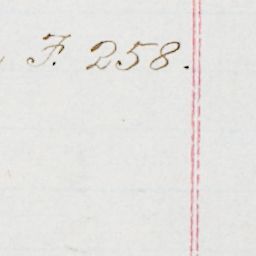 F. 258.